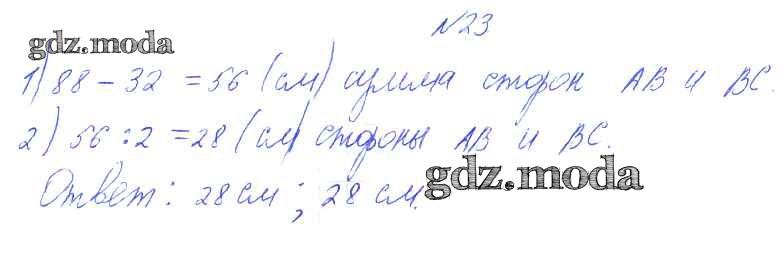 N23
gdz.moda
1) 88 - 32 = 56 (см) сумма сторон AB и BC.
2) 56 : 2 = 28 (см) стороны AB и BC.
Ответ: 28 см; 28 см.
gdz.moda